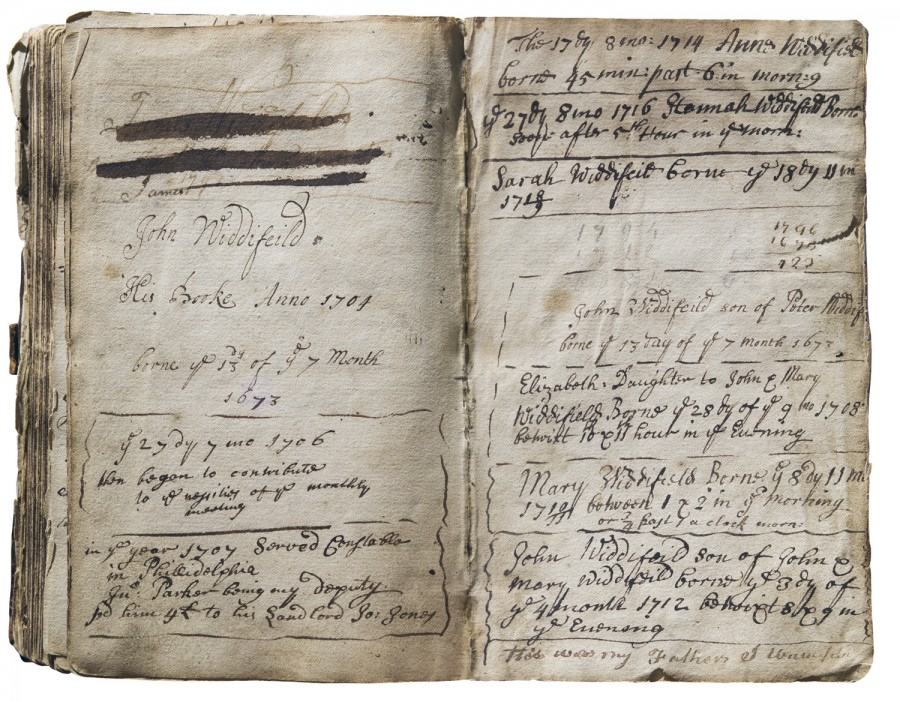 James
John Widdifeild
His Booke Anno 1704
borne ye 13th of ye 7 Month
1673
ye 27 dy 7 mo 1706
then began to contribute
to ye nessities of ye monthly
meeting
in ye year 1707 Served Constable
in Philladelphia
Jno. Parker being my deputy
pd him 4£ to his Landlord Jos: Jones
The 17 dy 8 mo: 1714 Anne Widdifield
borne 45 min: past 6 in morng
ye 27 dy 8 mo 1716 Hannah Widdifeild Borne
soone after 5th Hour in ye morn:
Sarah Widdifeild borne ye 18 dy 11 m
171
1796
1673
123
John Widdifeild son of Peter Widdif
borne ye 13 day of ye 7 month 1673
Elizabeth: Daughter to John & Mary
Widdifield Borne ye 28 dy of ye 9 mo 1708
betwixt 10 & 11 hour in ye Evening
Mary Widdifield Borne ye 8 dy 11 m
between 1 & 2 in ye morning
or past a clock morn:
John Widdifeild son of John &
Mary Widdifeild borne ye 3 dy of
ye 4 month 1712 betwixt 8 & 9 in
ye Evening
This was my Fathers